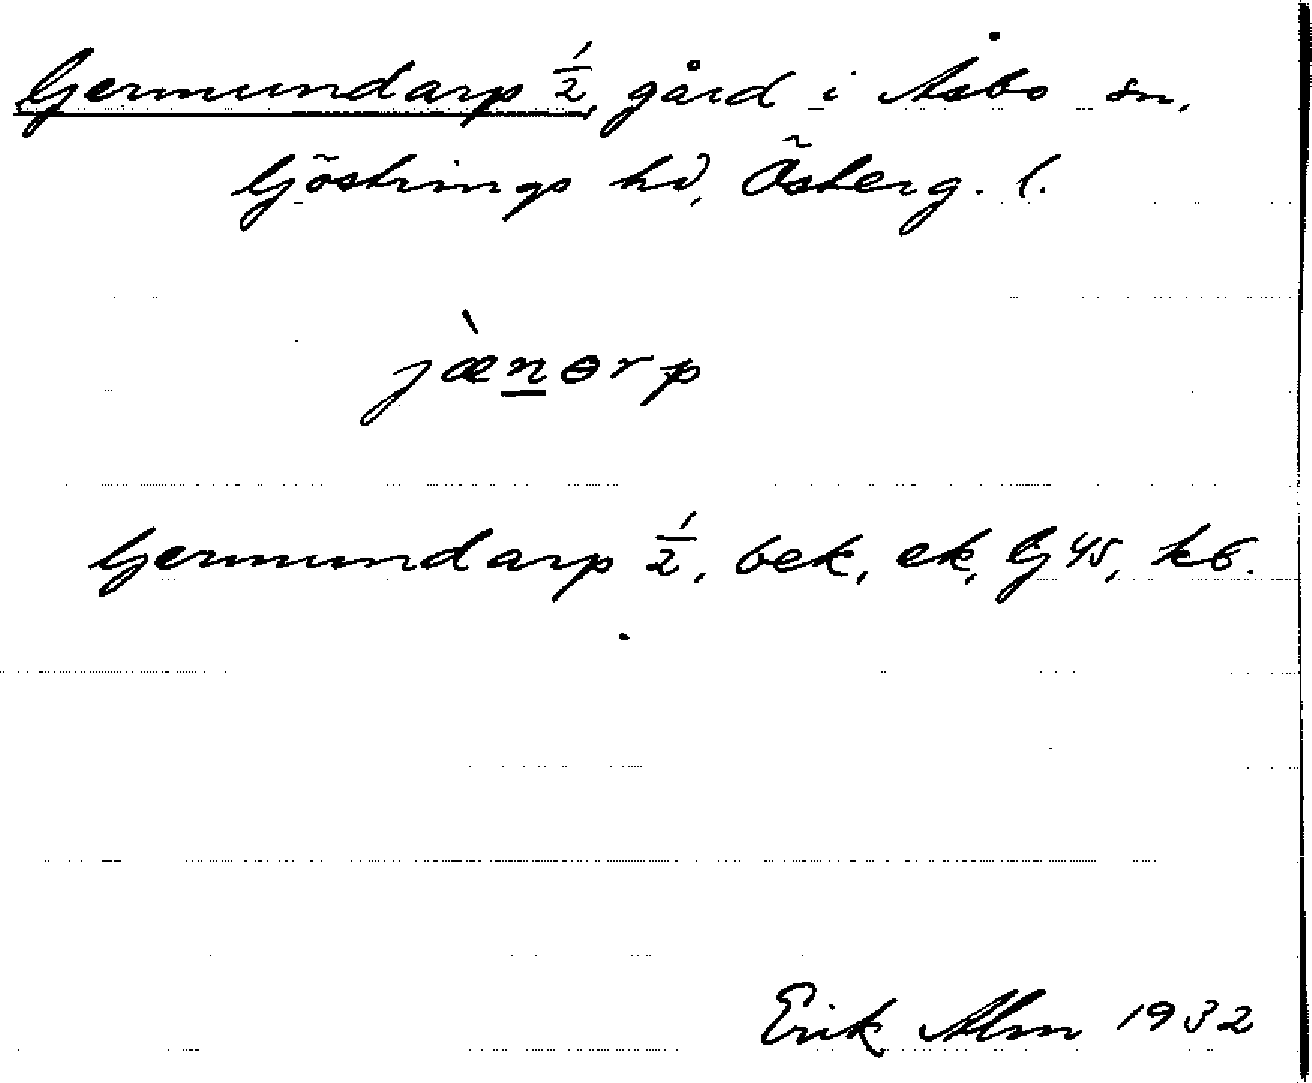 Germundarp 1/2, gård i Åsbo sn,
Göstrings hd, Österg. l.
jænɵrp
Germundarp 1/2, bek, ek, Gj 45, kb.
Erik Alm 1932